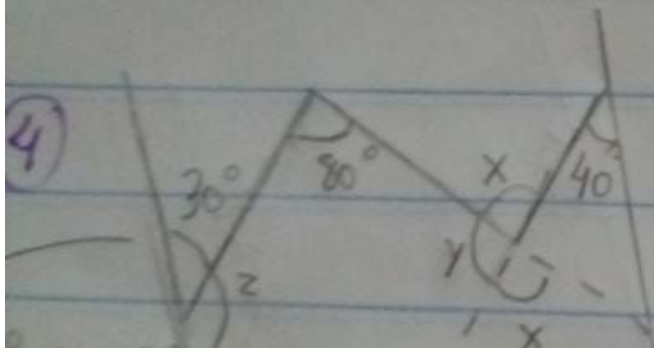 4
30°
80°
x
40°
z
y
x